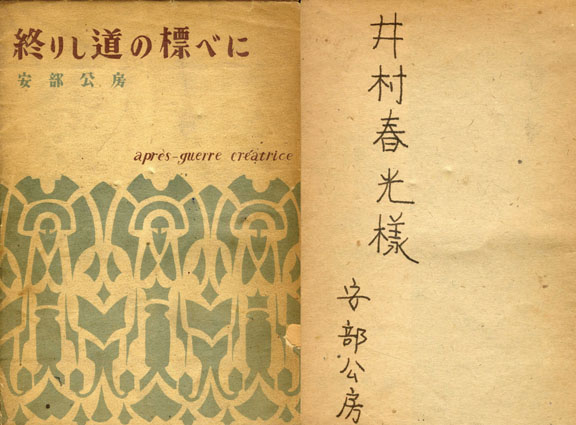 終りし道の標べに
安部公房
après-guerre créatrice
井村春光様
安部公房